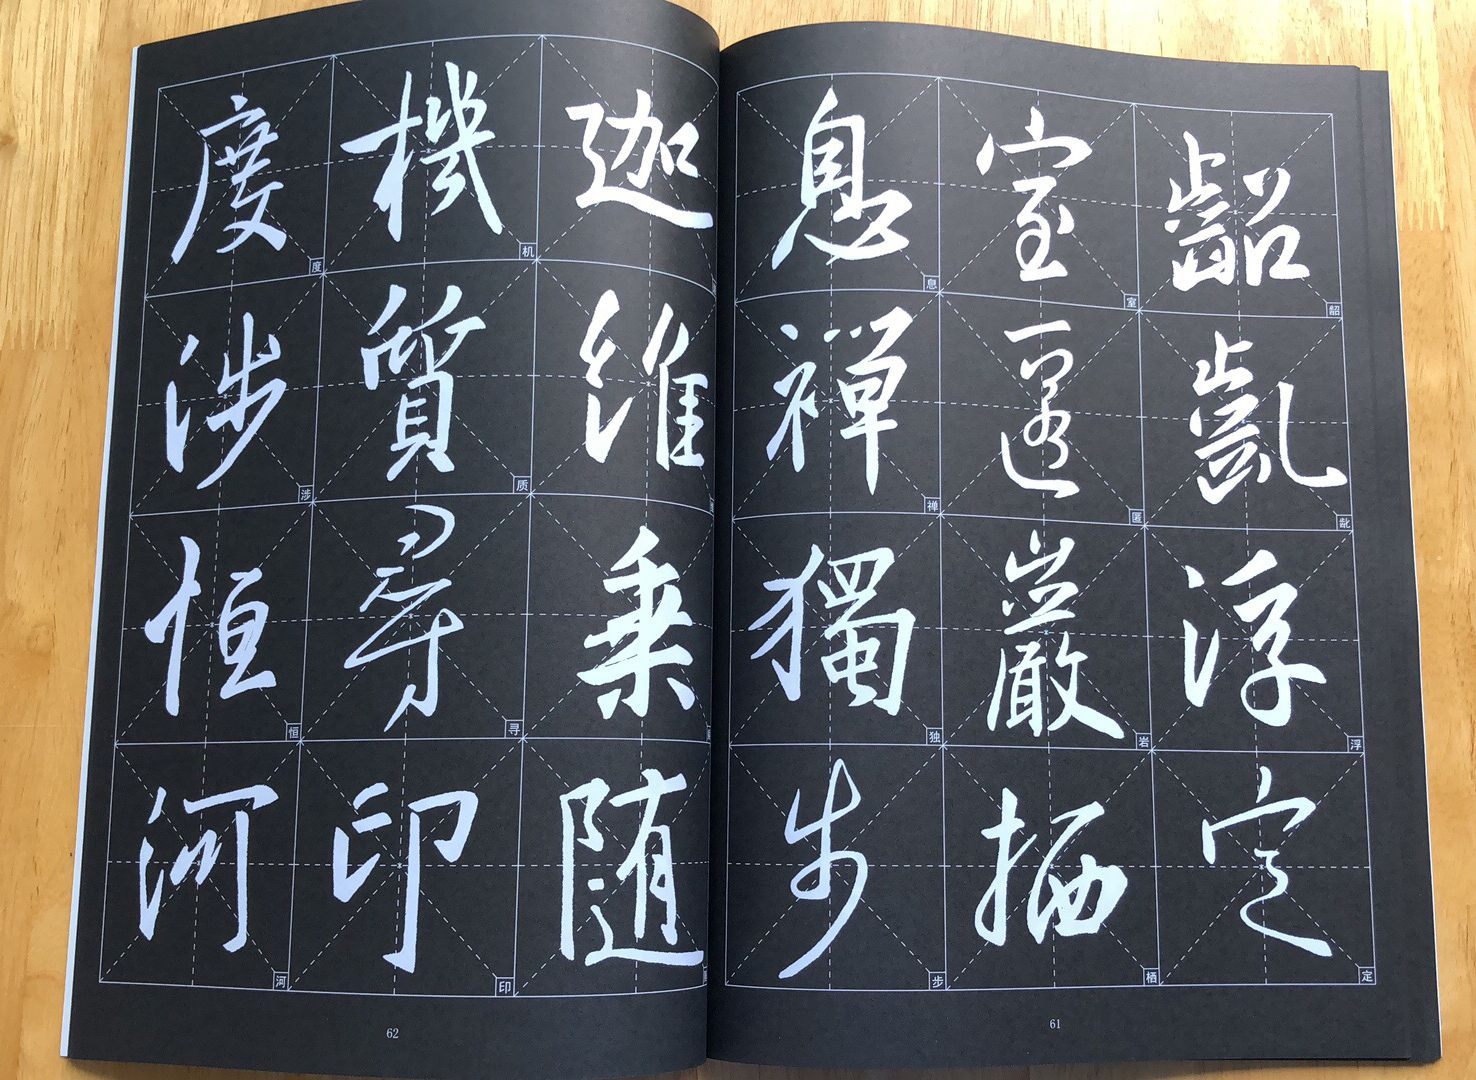 齠齔浮定
龆龀浮定
室匿巖栖
室匿岩栖
息禪獨步
息禅独步
61
迦維乗随
機質尋印
机质寻印
度涉恒河
度涉恒河
62